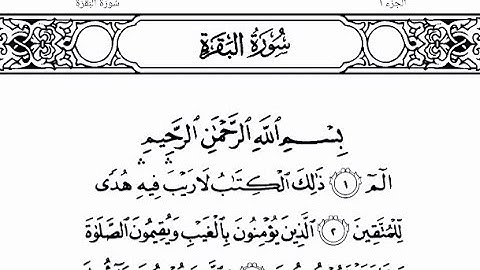 الجزء ١
سورة البقرة
سُورَةُ البَقَرَةِ
بِسْمِ اللَّهِ الرَّحْمَٰنِ الرَّحِيمِ
الٓمٓ ١ ذَٰلِكَ الْكِتَابُ لَا رَيْبَ ۛ فِيهِ ۛ هُدًى
لِّلْمُتَّقِينَ ٢ الَّذِينَ يُؤْمِنُونَ بِالْغَيْبِ وَيُقِيمُونَ الصَّلَاةَ